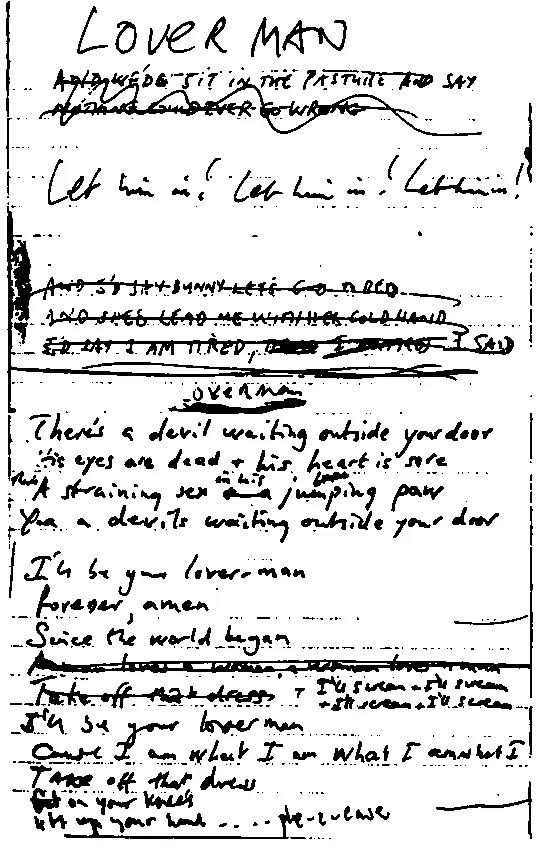 LOVER MAN
AND WE'DE SIT IN THE PASTURE AND SAY
NOTHING COULD EVER GO WRONG
Let him in! Let him in! Let him in!
AND I'D SAY BUNNY LETS GO TIRED
AND SHED LEAD ME WITH HER COLD HAND
I'D SAY I AM TIRED, I SAID
LOVERMAN
There's a devil waiting outside your door
His eyes are dead + his heart is sore
A straining sex in his jumping paw
Yea a devils waiting outside your door
I'll be your lover-man
forever, amen
Since the world began
loves a woman, a woman loves a man
Take off that dress + I'll scream + I'll scream
+ I'll scream + I'll scream
I'll be your lover man
Cause I am what I am what I am what I
TAKE off that dress
Get on your knees
lift up your hand ....